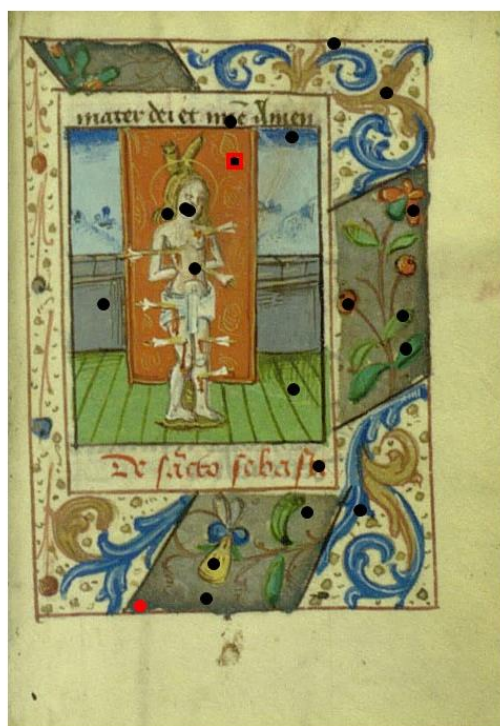 mater dei et mē Amen
De sācto sebasti